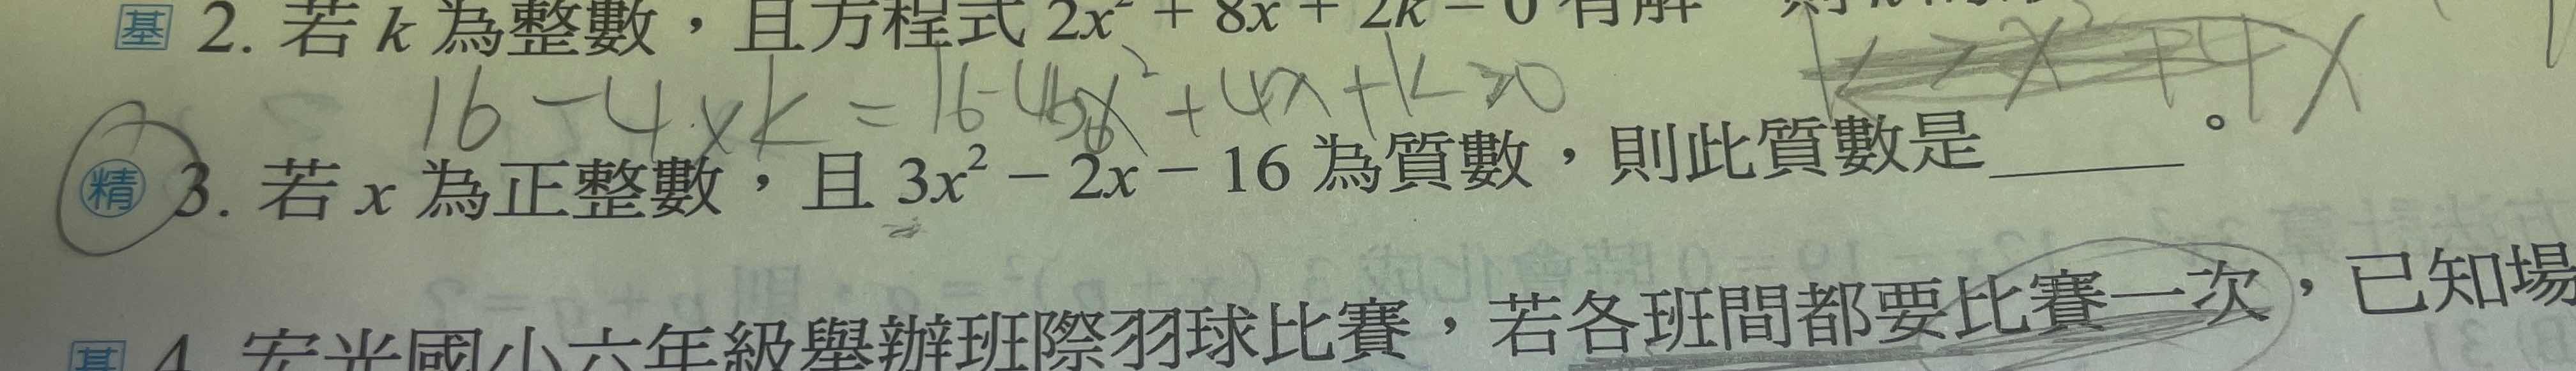 基 2. 若 k 為整數，且方程式 2x² + 8x + 2k = 0 有解
16 - 4 × k = 16 - 4k x² + 4x + k ≥ 0
k > x² + 4x
精 3. 若 x 為正整數，且 3x² − 2x − 16 為質數，則此質數是______。
基 4. 宏光國小六年級舉辦班際羽球比賽，若各班間都要比賽一次，已知場